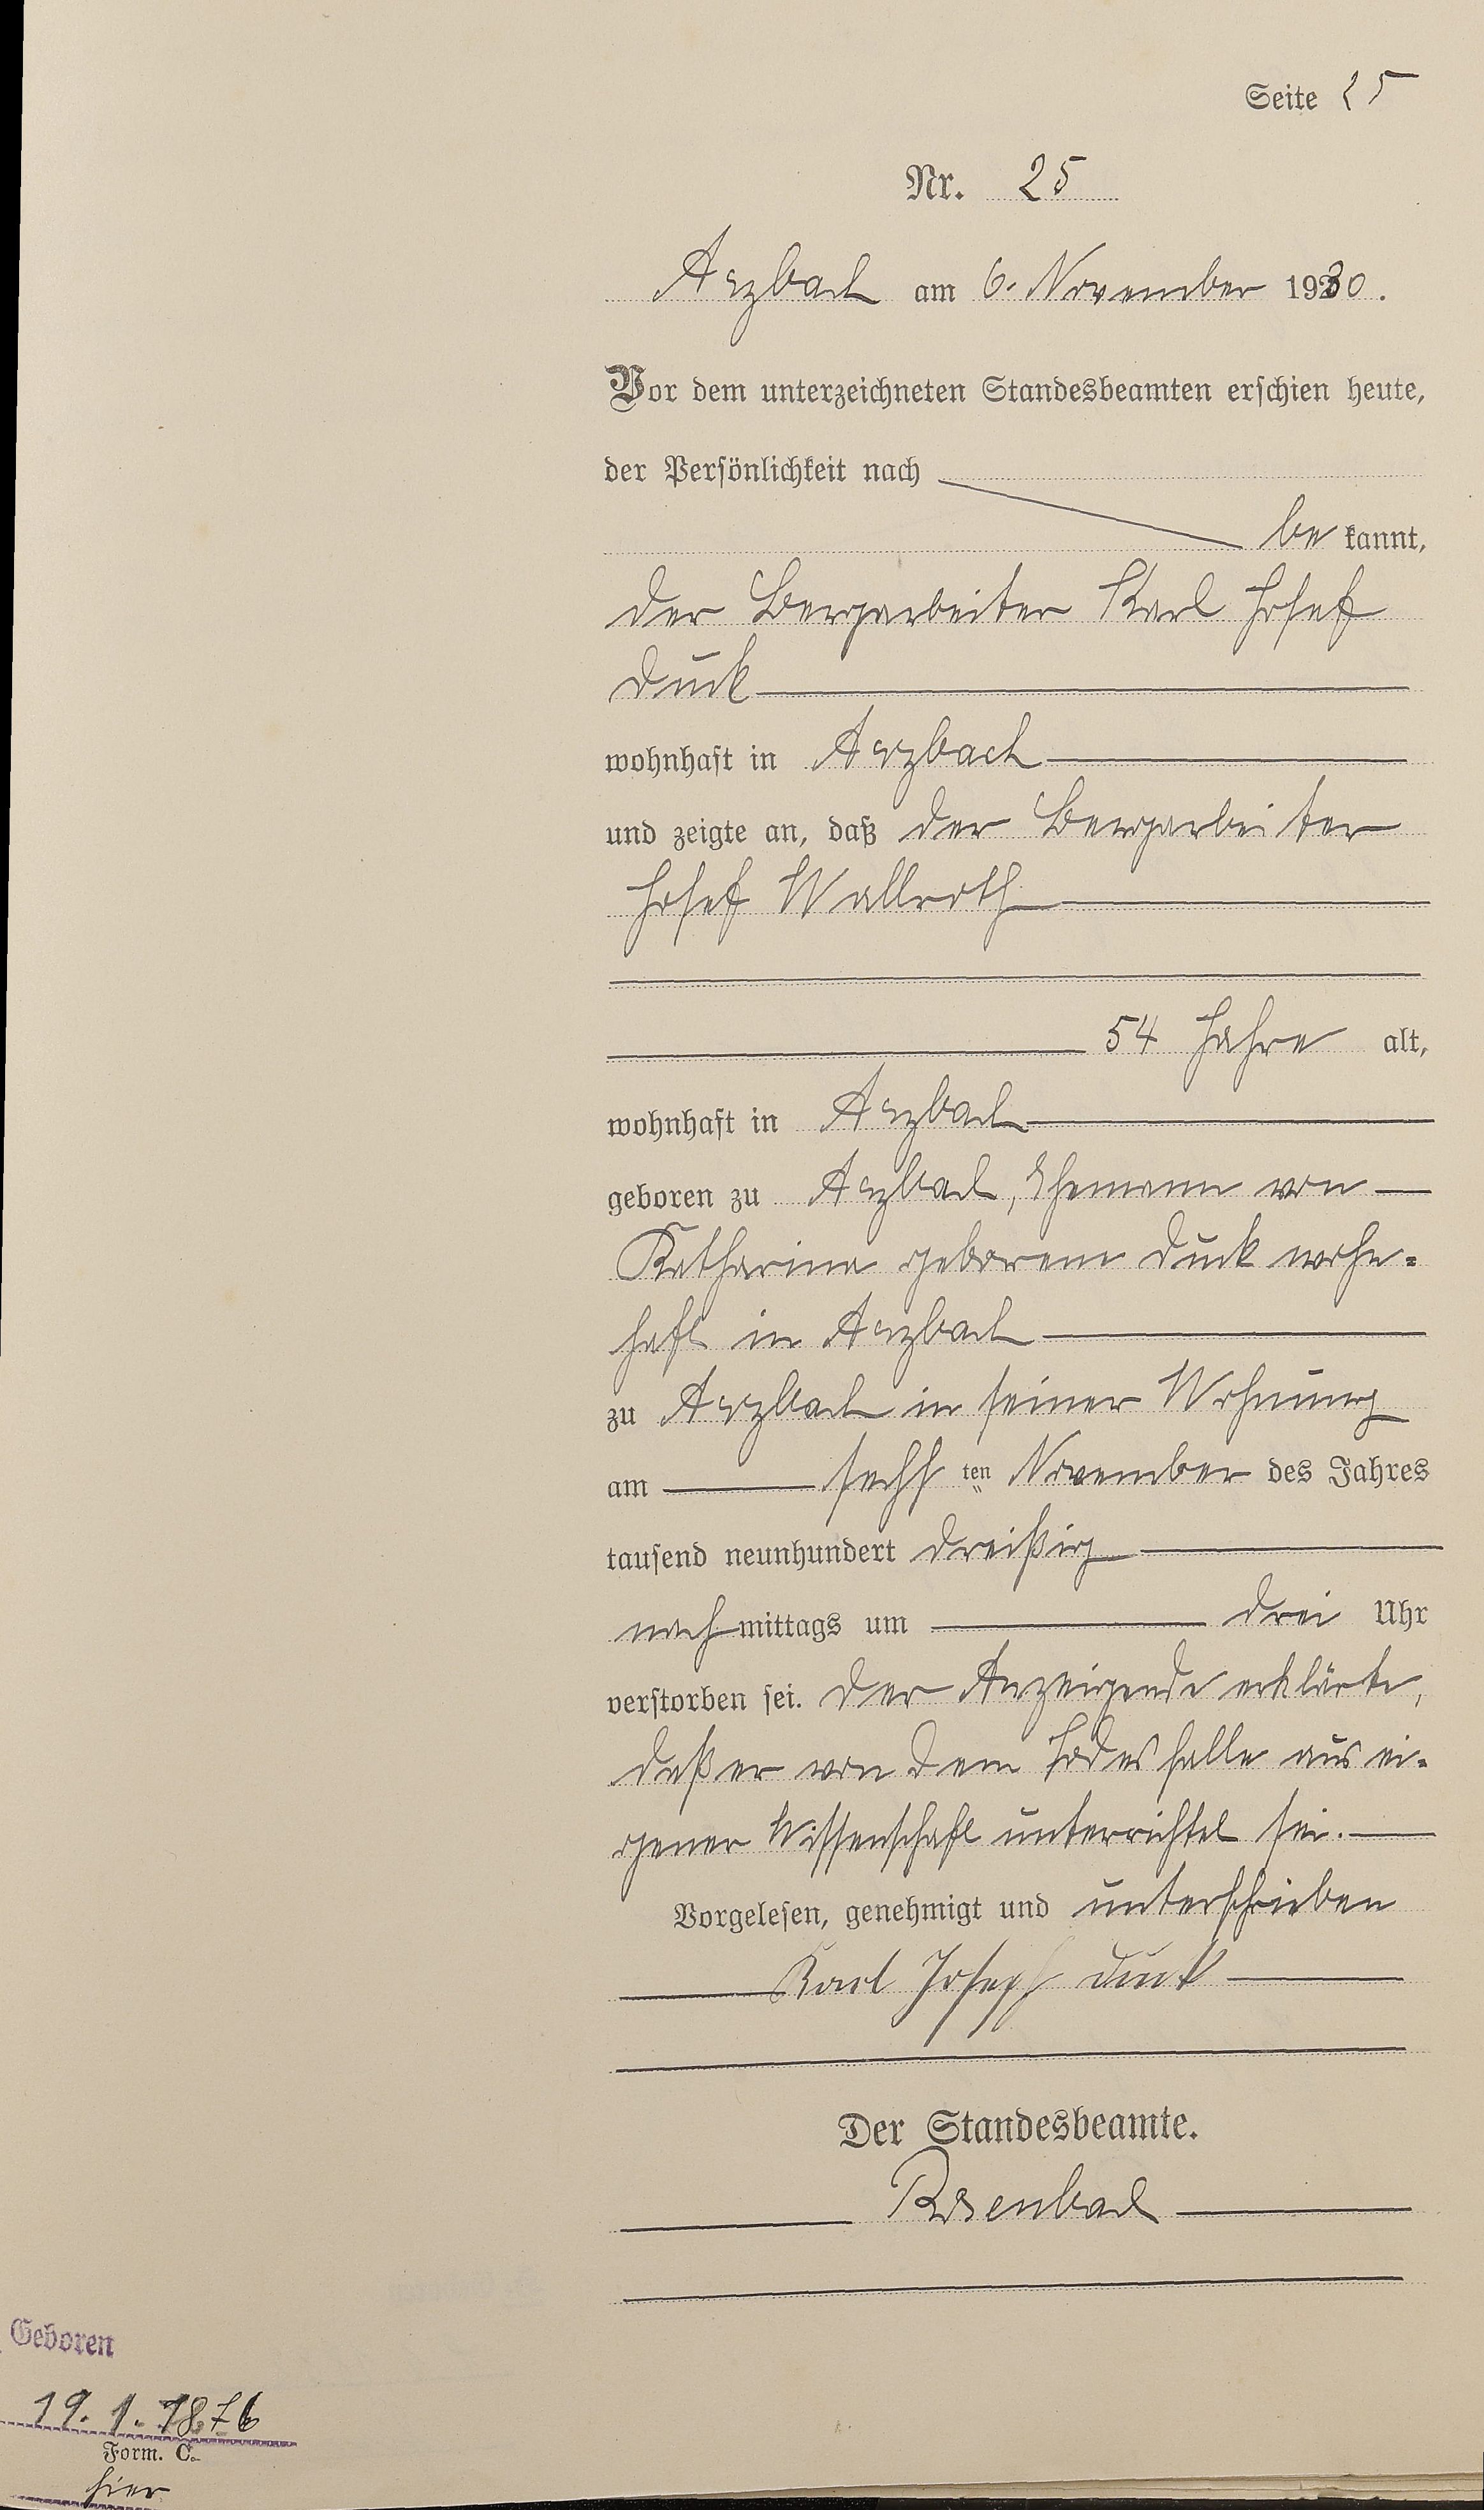 Seite 25
Nr. 25
Arzbach am 6. November 1930.
Vor dem unterzeichneten Standesbeamten erschien heute,
der Persönlichkeit nach
be kannt,
der Bergarbeiter Karl Josef
Duck
wohnhaft in Arzbach
und zeigte an, daß der Bergarbeiter
Josef Wallroth
54 Jahre alt,
wohnhaft in Arzbach
geboren zu Arzbach, Ehemann von
Katharina geborene Duck wohn=
haft in Arzbach
zu Arzbach in seiner Wohnung
am sechsten November des Jahres
tausend neunhundert dreißig
nachmittags um drei Uhr
verstorben sei. Der Anzeigende erklärte,
daß er von dem Todesfalle aus ei=
gener Wissenschaft unterrichtet sei.
Vorgelesen, genehmigt und unterschrieben
Karl Joseph Duck
Der Standesbeamte.
Rosenbach
Geboren
19. 1. 1876
Form. C.
hier